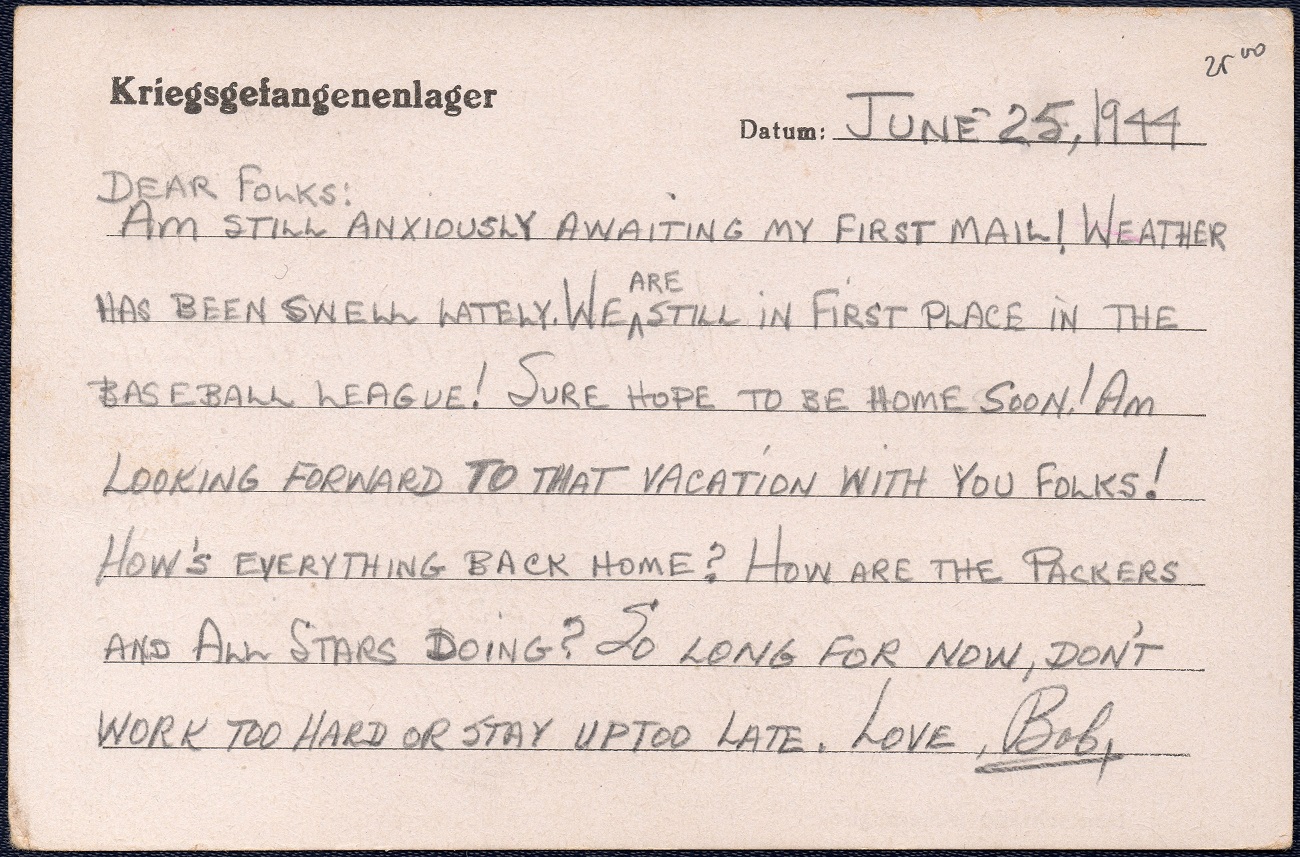 25 00
Kriegsgefangenenlager
Datum: JUNE 25, 1944
DEAR FOLKS:
AM STILL ANXIOUSLY AWAITING MY FIRST MAIL! WEATHER
HAS BEEN SWELL LATELY. WE ARE STILL IN FIRST PLACE IN THE
BASEBALL LEAGUE! SURE HOPE TO BE HOME SOON! AM
LOOKING FORWARD TO THAT VACATION WITH YOU FOLKS!
HOW'S EVERYTHING BACK HOME? HOW ARE THE PACKERS
AND ALL STARS DOING? SO LONG FOR NOW, DON'T
WORK TOO HARD OR STAY UP TOO LATE. LOVE, Bob,